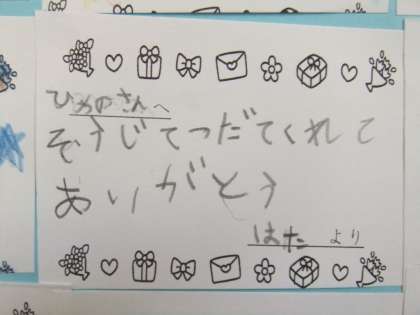 ひろのさんへ
ぞうじてつだてくれて
ありがとう
はたより